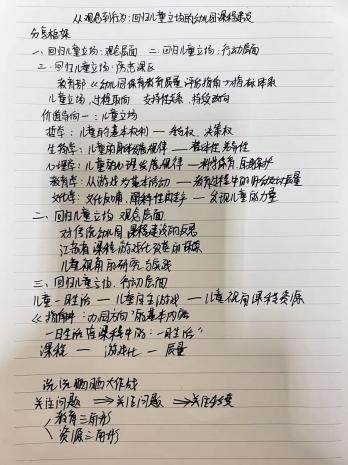 从观念到行为:回归儿童立场的幼儿园课程建设
分享框架
一.回归儿童立场:观念层面 二.回归儿童立场:行动层面
三.回归儿童立场:
教育部《幼儿园保育教育质量评估指南》指标体系
儿童立场,过程取向 支持性关系.持续改向
价值导向一:儿童立场
哲学:儿童的基本权利——参与权、决策权
生物学:儿童的身体发展规律——整体性.差异性
心理学:儿童的心理发展规律——科学保育.
教育学:从游戏为基本活动——教育过程中的师幼互动质量
文化学:文化反哺.——发现儿童的力量
二.回归儿童立场 观念层面
对传统幼儿园课程建设的反思
江苏省课程游戏化改革的探索
儿童视角的研究与实践
三.回归儿童立场.行动层面
儿童一日生活——儿童自主游戏——儿童视角课程资源
《指南》:办园方向的基本内涵
一日生活皆课程中的"一日生活"
课程——游戏化——质量
洗洗晒晒大作战
关注问题 ⇒关注问题 ⇒关注转变
教育三角形
资源三角形